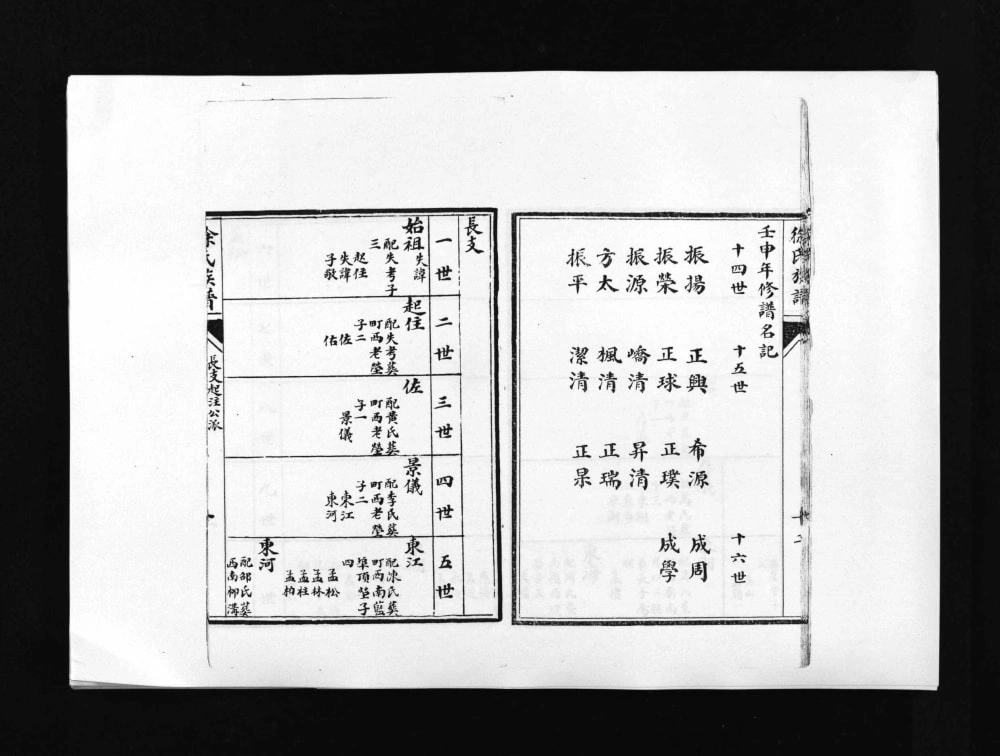 徐氏族譜
壬申年修譜名記
十四世 十五世 十六世
振揚 正興 希源 成周
振榮 正球 正璞 成學
振源 嶠清 昇清
方太 楓清 正瑞
振平 潔清 正杲
長支
一世
始祖失諱
配失考子
三
起住
失諱
子敬
二世
起住
配失考葬
町西老塋
子二
佐
佑
三世
佐
配黃氏葬
町西老塋
子一
景儀
四世
景儀
配李氏葬
町西老塋
子二
東江
東河
五世
東江
配涑氏葬
町西南藍
埠頂塋子
四
孟松
孟林
孟柱
孟柏
東河
配邵氏墓
西南柳溝
徐氏族譜
長支起注公派